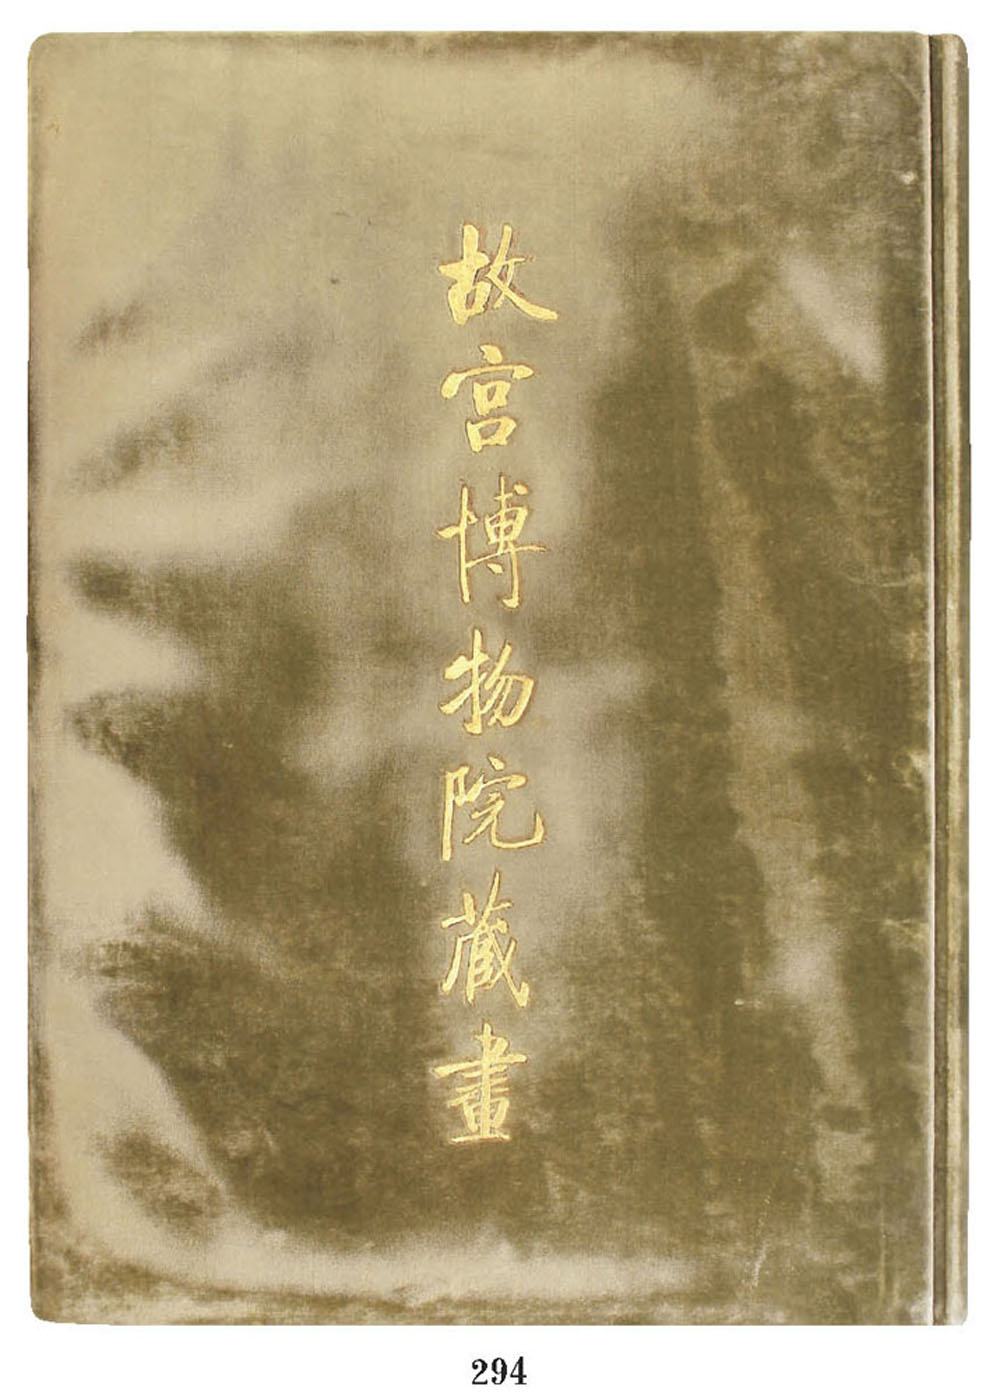 故宫博物院藏畫
294